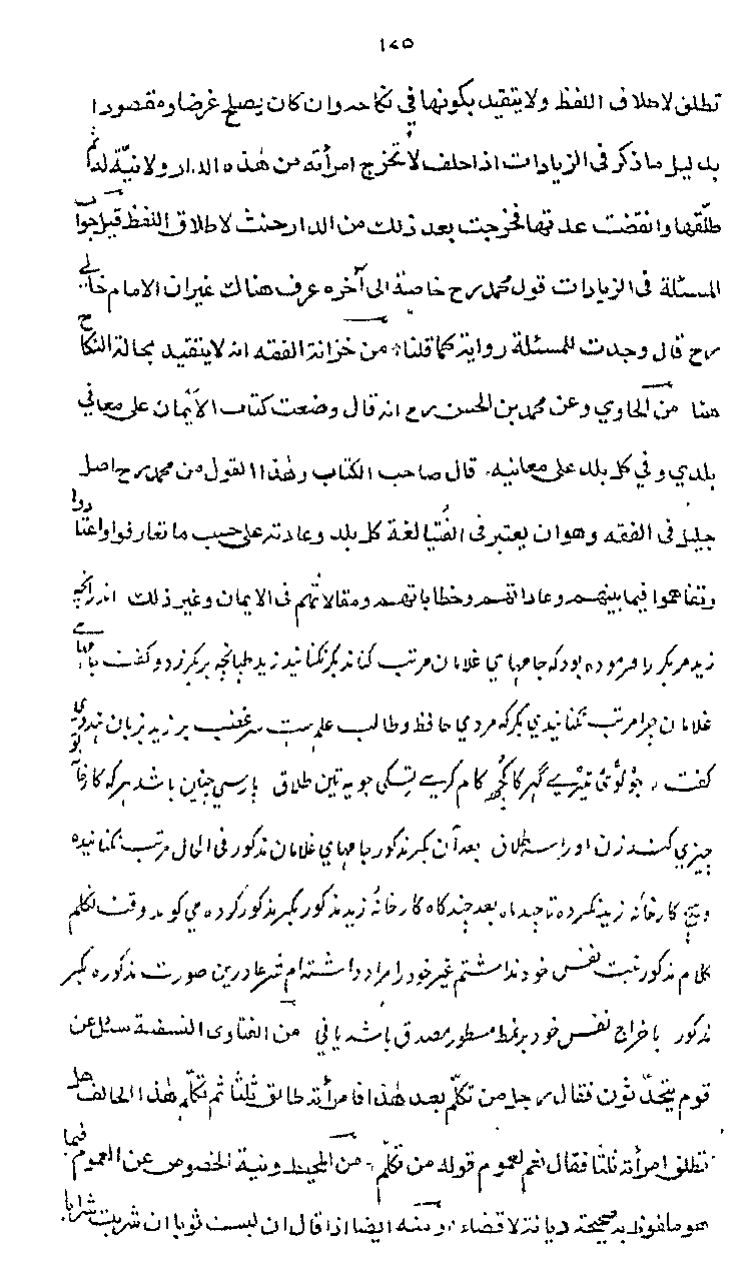 ١٨٥
تطلق لاطلاق اللفظ ولا يتقيد بكونها في نكاحه وان كان يصلح غرضا ومقصودا
بدليل ما ذكر في الزيادات اذا حلف لا تخرج امرأته من هذه الدار ولا نيّة له ثم
طلّقها وانقضت عدتها فخرجت بعد ذلك من الدار حنث لاطلاق اللفظ قيل جواب
المسئلة في الزيادات قول محمد رح خاصة الى آخره عرف هناك غير ان الامام خالي
رح قال وجدت للمسئلة رواية كما قلنا من خزانة الفقه انه لا يتقيد بحالة النكاح
هنا من الحاوي وعن محمد بن الحسن رح انه قال وضعت كتاب الأيمان على معاني
بلدي وفي كل بلد على معانيه قال صاحب الكتاب وهذا القول من محمد رح اصل
جليل في الفقه وهو ان يعتبر في الفُتيا لغة كل بلد وعادته على حسب ما تعارفوا واعتادوا
وتفاهموا فيما بينهم وعاداتهم وخطاباتهم ومقالاتهم في الايمان وغير ذلك
زيد مر بكر را فرموده بود كه جامهاي غلامان مرتب كناند بكر نكنانيد زيد طپانچه بر بكر زد و گفت
غلامان چرا مرتب نكنانيدي بكر كه مردي حافظ وطالب علم ست بر غضب بر زيد بزبان هندوي
گفت جو كوئى تيرے گهر كا كچھ كام كرے تسكى جويه تين طلاق پارسي چنين باشد هركه كارخانه
چيزي كند زن او را سه طلاق بعد آن بكر مذكور جامهاي غلامان مذكور في الحال مرتب كنانيده
وهيچ كارخانه زيد نكرده تا چند ماه بعد چند گاه كارخانهٔ زيد مذكور بكر مذكور كرده مي گويد وقت تكلم
كلام مذكور نيت نفس خود نداشتم غير خود را مراد داشته ام شرعا درين صورت مذكوره بكر
مذكور باخراج نفس خود بر نمط مسطور مصدق باشد يا ني من الفتاوى النسفية سئل عن
قوم يتحدّثون فقال رجل من تكلّم بعد هذا فامرأته طالق ثلثا ثم تكلّم هذا الحالف هل
تطلق امرأته ثلثا فقال نعم لعموم قوله من تكلّم من المحيط ونية الخصوص عن العموم فيما
هو ملفوظ به صحيحة ديانة لا قضاء ومنه ايضا اذا قال ان لبست ثوبا ان شربت شرابا